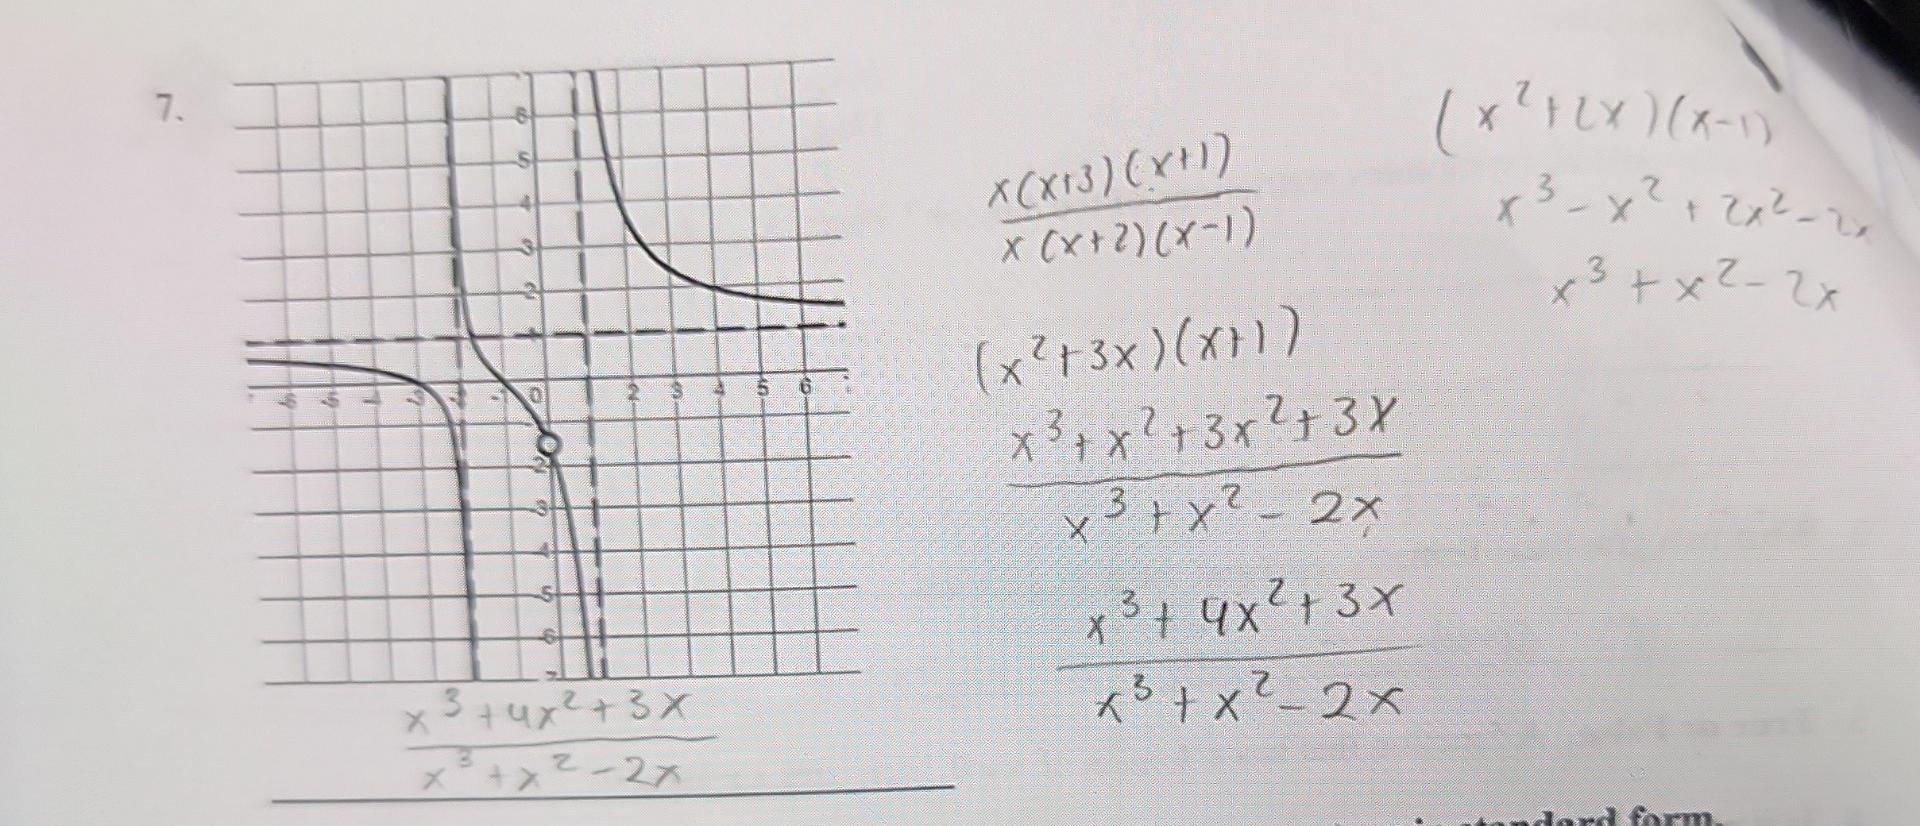 7.
6
5
4
3
2
0 2 3 4 5 6
2
3
4
5
6
x³ + 4x² + 3x
x³ + x² - 2x
x(x+3)(x+1)
x(x+2)(x-1)
(x²+3x)(x+1)
x³ + x² + 3x² + 3x
x³ + x² - 2x
x³ + 4x² + 3x
x³ + x² - 2x
(x²+2x)(x-1)
x³ - x² + 2x² - 2x
x³ + x² - 2x
standard form.